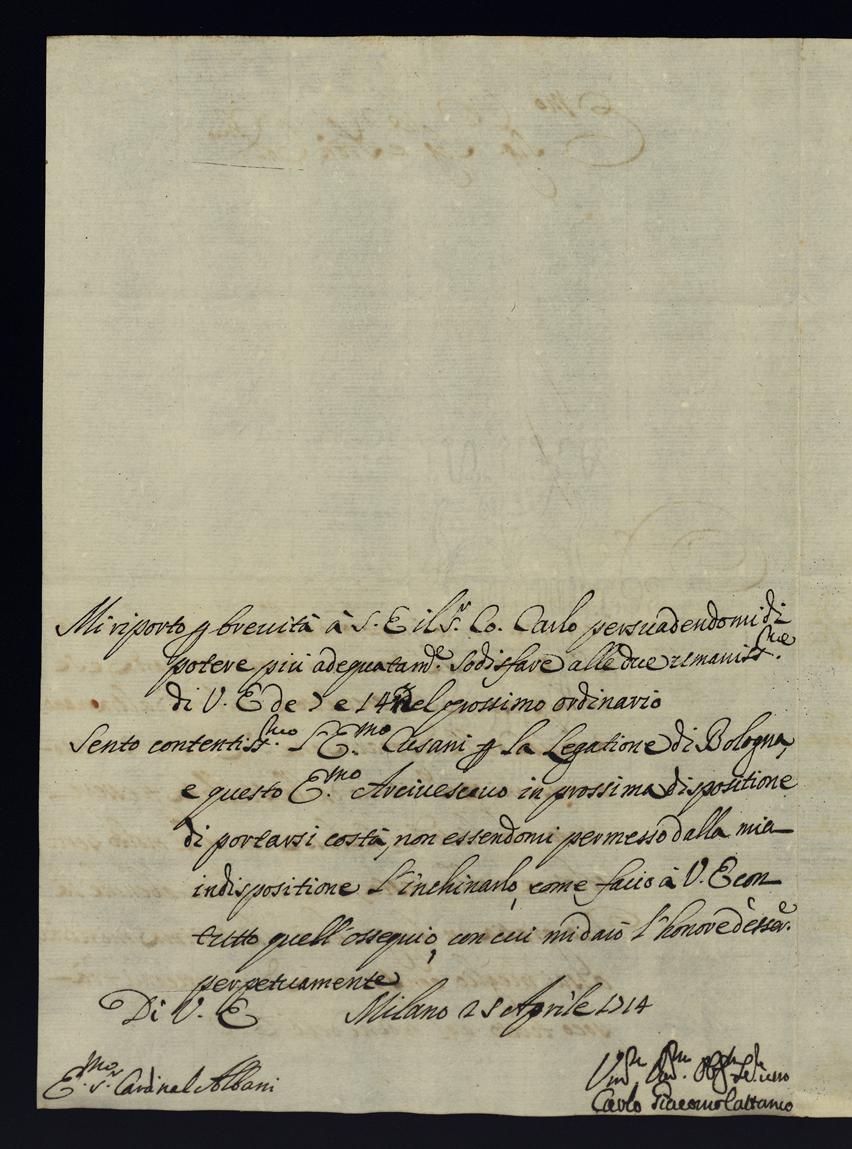 Mi riporto p brevità à S. E il Sr. Co. Carlo persuadendomi di
potere più adeguatamte. sodisfare alle due
di V. E de 7 e 14 nel prossimo ordinario
Sento contentissmo. l'Emo. Cusani p la Legatione di Bologna,
e questo Emo. Arcivescovo in prossima dispositione
di portarsi costà, non essendomi permesso dalla mia
indispositione l'inchinarlo, come facio à V. E con
tutto quell'ossequio, con cui mi daiò l'honore d'essere.
perpetuamente
Di V. E Milano 25 Aprile 1714
Emo. Sr. Cardinal Albani
Carlo Giacomo Cattaneo